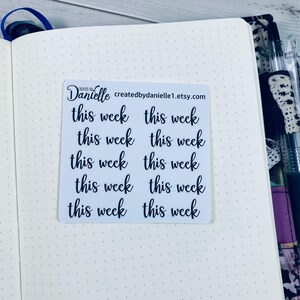 Danielle createdbydanielle1.etsy.com
this week this week
this week this week
this week this week
this week this week
this week this week